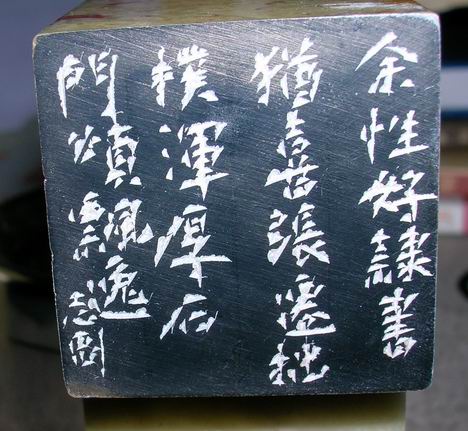 余性好隸書
猶喜張遷拙
樸渾厚石
門頌飄逸志